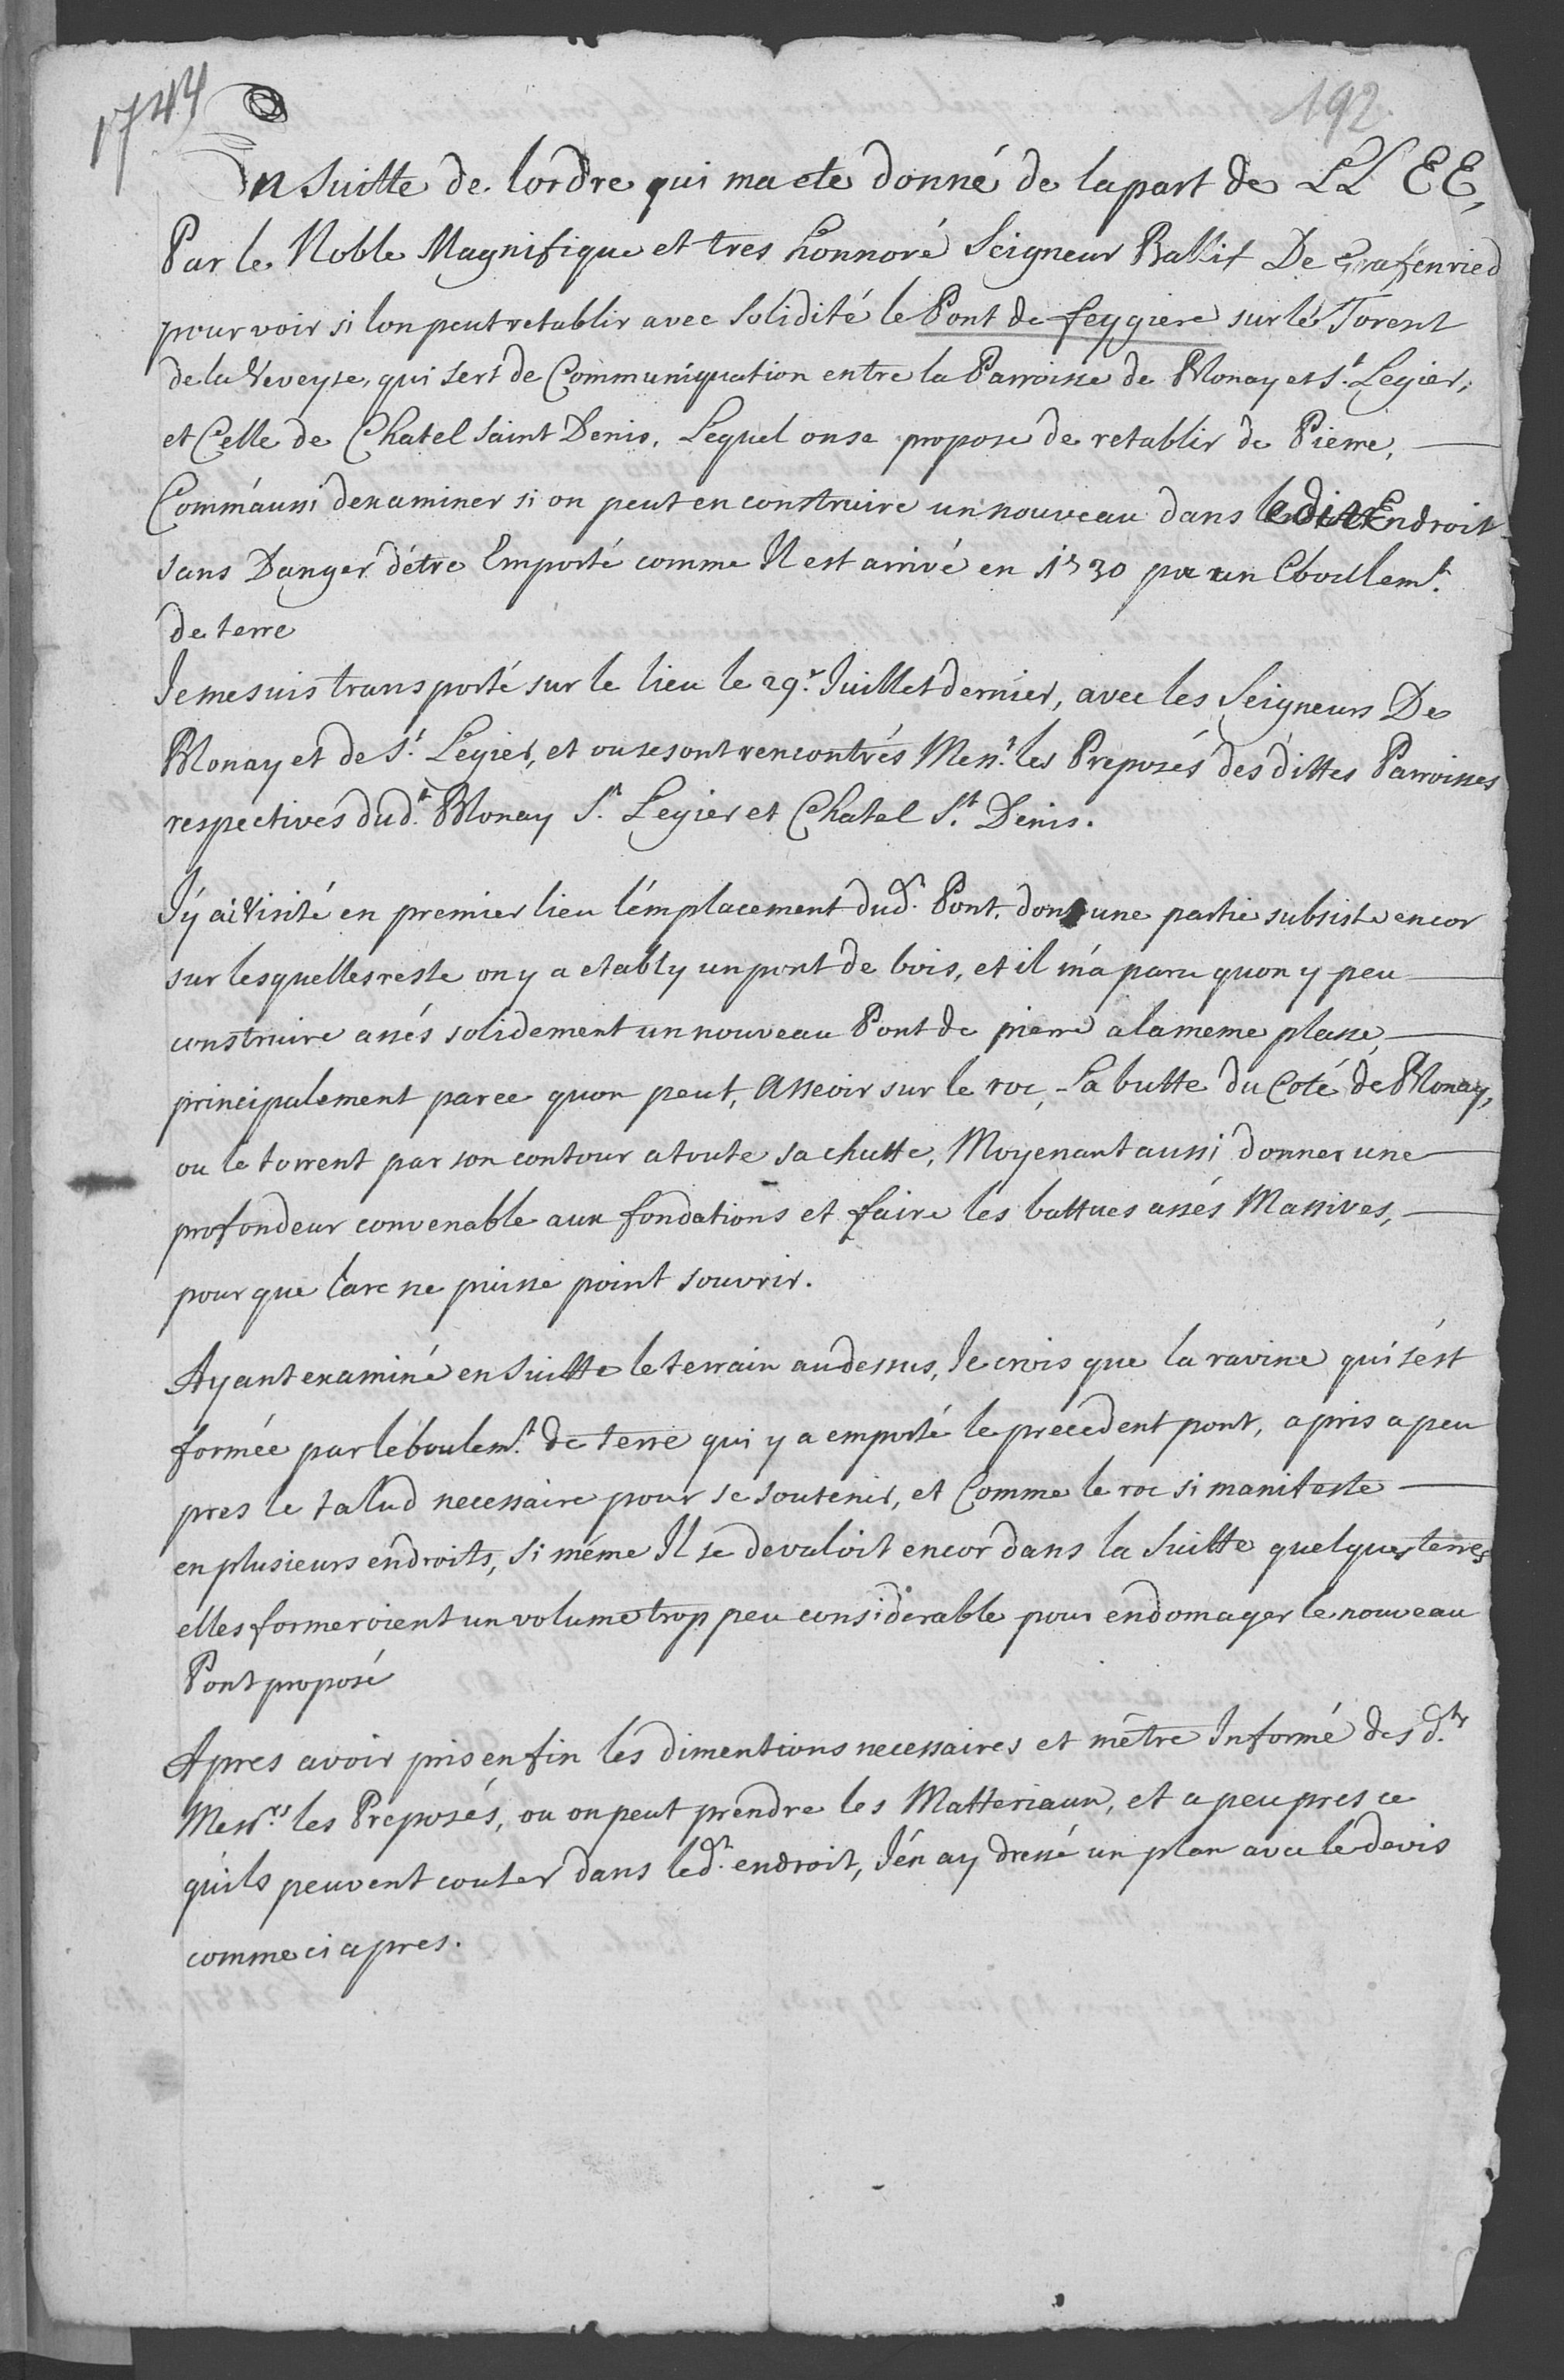 1744
192
En Suitte de lordre qui ma ete donné de lapart de LL EE,
Par le Noble Magnifique et tres honnoré Seigneur Ballif De Grafenried
pour voir si lon peut retablir avec Solidité le Pont de feygiere sur le Torent
de la Veveyse, qui sert de Communiquation entre la Parroisse de Blonay et St. Legier,
et Celle de Chatel Saint Denis, Lequel on se propose de retablir de Pierre,
Comm'aussi dexaminer si on peut en construire un nouveau dans ledit Endroit
sans Danger d'étre Emporté comme Il est arrivé en 1730 par un Eboullemt.
de terre
Je me suis transporté sur le lieu le 29.e Juillet dernier, avec les Seigneurs De
Blonay et de St. Legier, et ou se sont rencontrés Messrs. les Preposés des dittes Parroisses
respectives dudt. Blonay St. Legier et Chatel St. Denis.
J'y ai Visité en premier lieu l'émplacement dudt. Pont, dont une partie subsiste encor
sur lesquelles reste on y a etably un pont de bois, et il m'a paru quon y peu
construire assés solidement un nouveau Pont de pierre a la meme plasse,
principalement parce quon peut, Asseoir sur le roc, la butte du Coté de Blonay,
ou le torrent par son contour a toute sa chutte, Moyenant aussi donner une
profondeur convenable aux fondations et faire les buttues assés Massives,
pour que l'arc ne puisse point souvrir.
Ayant examiné en Suitte le terrain au dessus, Je crois que la ravine qui s'ést
formée par léboulemt. de terre qui y a emporté le precedent pont, a pris a peu
pres le talud necessaire pour se soutenir, et Comme le roc si manifeste
en plusieurs endroits, si méme Il se devaloit encor dans la Suitte quelques terres
elles formeroient un volume trop peu considerable pour endomager le nouveau
Pont proposé
Apres avoir pris enfin les dimentions necessaires et m'être Informé des dts.
Messrs. les Preposés, ou on peut prendre les Matteriaux, et a peu pres ce
qu'ils peuvent couter dans ledt. endroit, J'én ay dressé un plan avec le devis
comme ci apres.